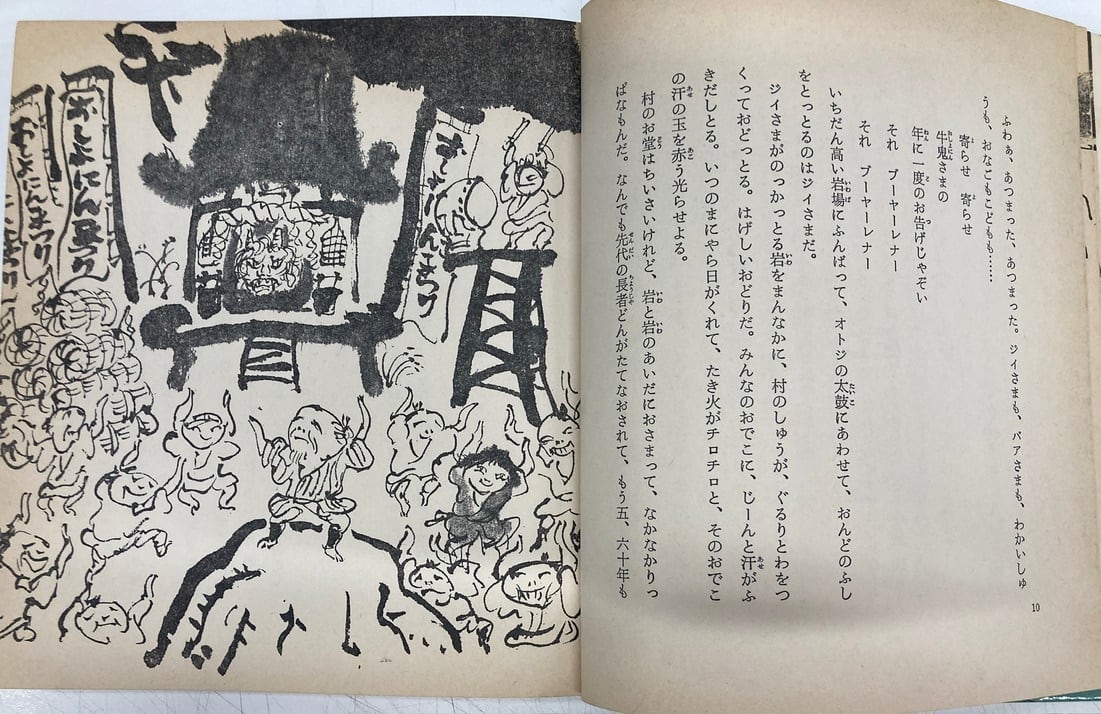 ふわぁ、あつまった、あつまった。ジイさまも、バアさまも、わかいしゅ
うも、おなごもこどもも……
寄らせ 寄らせ
牛鬼さまの
年に一度のお告げじゃぞい
それ プーヤーレナー
それ プーヤーレナー
いちだん高い岩場にふんばって、オトジの太鼓にあわせて、おんどのふし
をとっとるのはジイさまだ。
ジイさまがのっかっとる岩をまんなかに、村のしゅうが、ぐるりとわをつ
くっておどっとる。はげしいおどりだ。みんなのおでこに、じーんと汗がふ
きだしとる。いつのまにやら日がくれて、たき火がチロチロと、そのおでこ
の汗の玉を赤う光らせよる。
村のお堂はちいさいけれど、岩と岩のあいだにおさまって、なかなかりっ
ぱなもんだ。なんでも先代の長者どんがたてなおされて、もう五、六十年も
10
おしょにんまつり